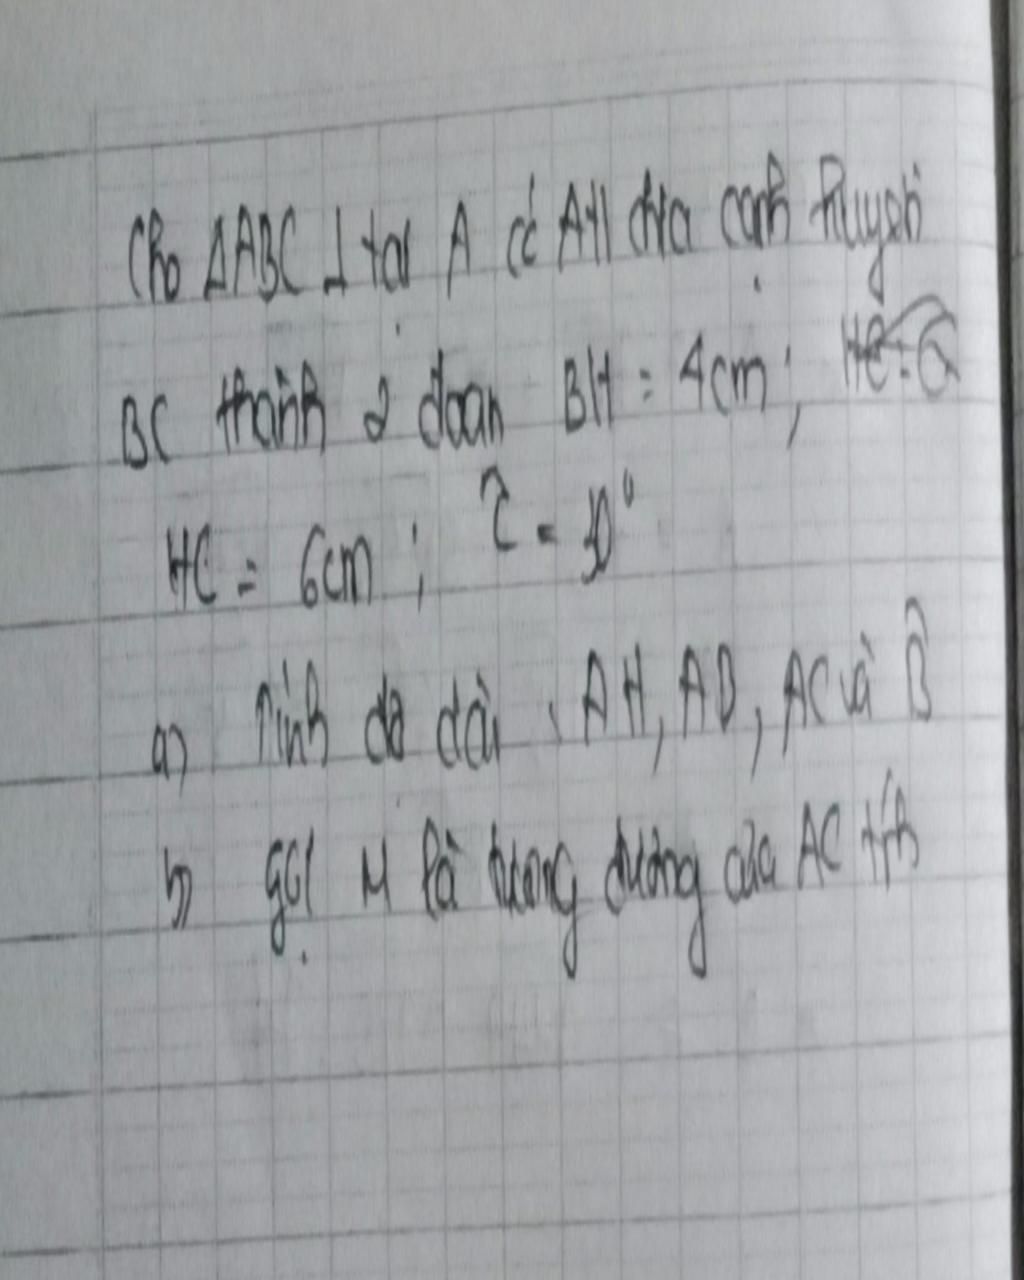 Cho ΔABC ⊥ tại A có AH chia cạnh huyền
BC thành 2 đoạn BH = 4cm ;
HC = 6cm ; Ĉ = 30°
a) Tính độ dài AH, AB, AC và B̂
b) gọi M là trung của AC tính